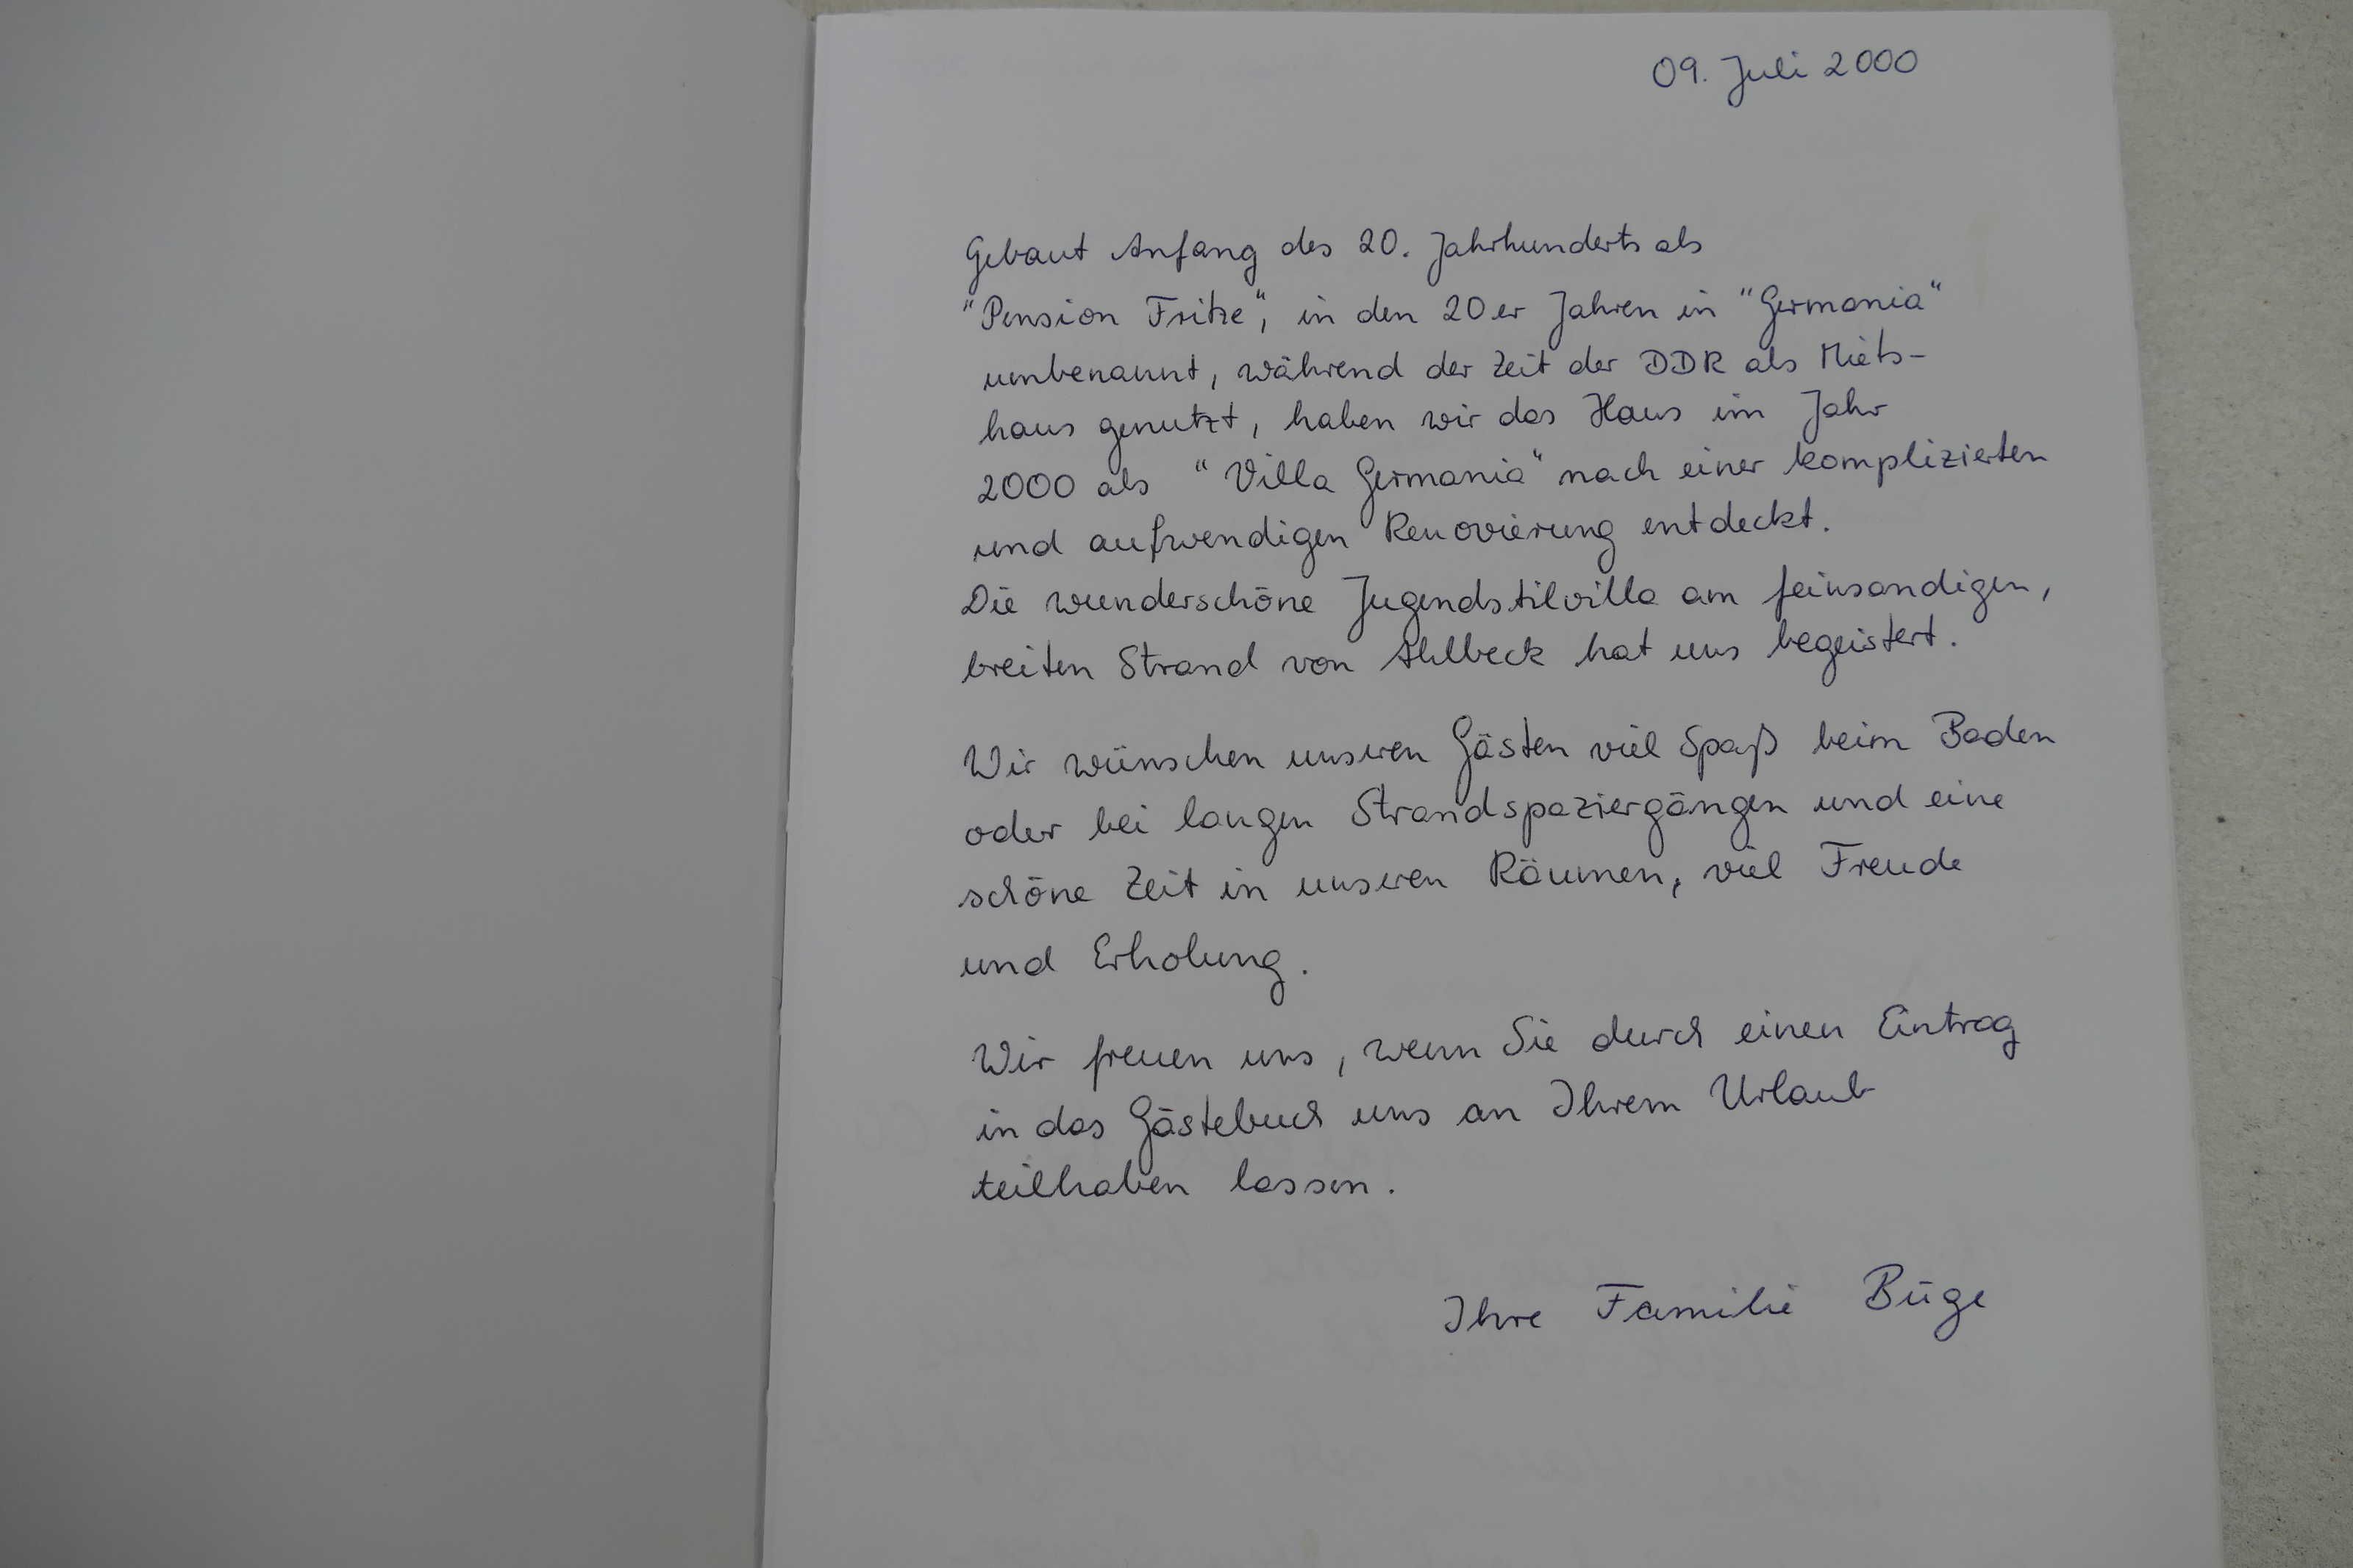 09. Juli 2000
Gebaut Anfang des 20. Jahrhunderts als
"Pension Fritze", in den 20er Jahren in "Germania"
umbenannt, während der Zeit der DDR als Miets-
haus genutzt, haben wir das Haus im Jahr
2000 als "Villa Germania" nach einer komplizierten
und aufwendigen Renovierung entdeckt.
Die wunderschöne Jugendstilvilla am feinsandigen,
breiten Strand von Ahlbeck hat uns begeistert.
Wir wünschen unseren Gästen viel Spaß beim Baden
oder bei langen Strandspaziergängen und eine
schöne Zeit in unseren Räumen, viel Freude
und Erholung.
Wir freuen uns, wenn Sie durch einen Eintrag
in das Gästebuch uns an Ihrem Urlaub
teilhaben lassen.
Ihre Familie Büge